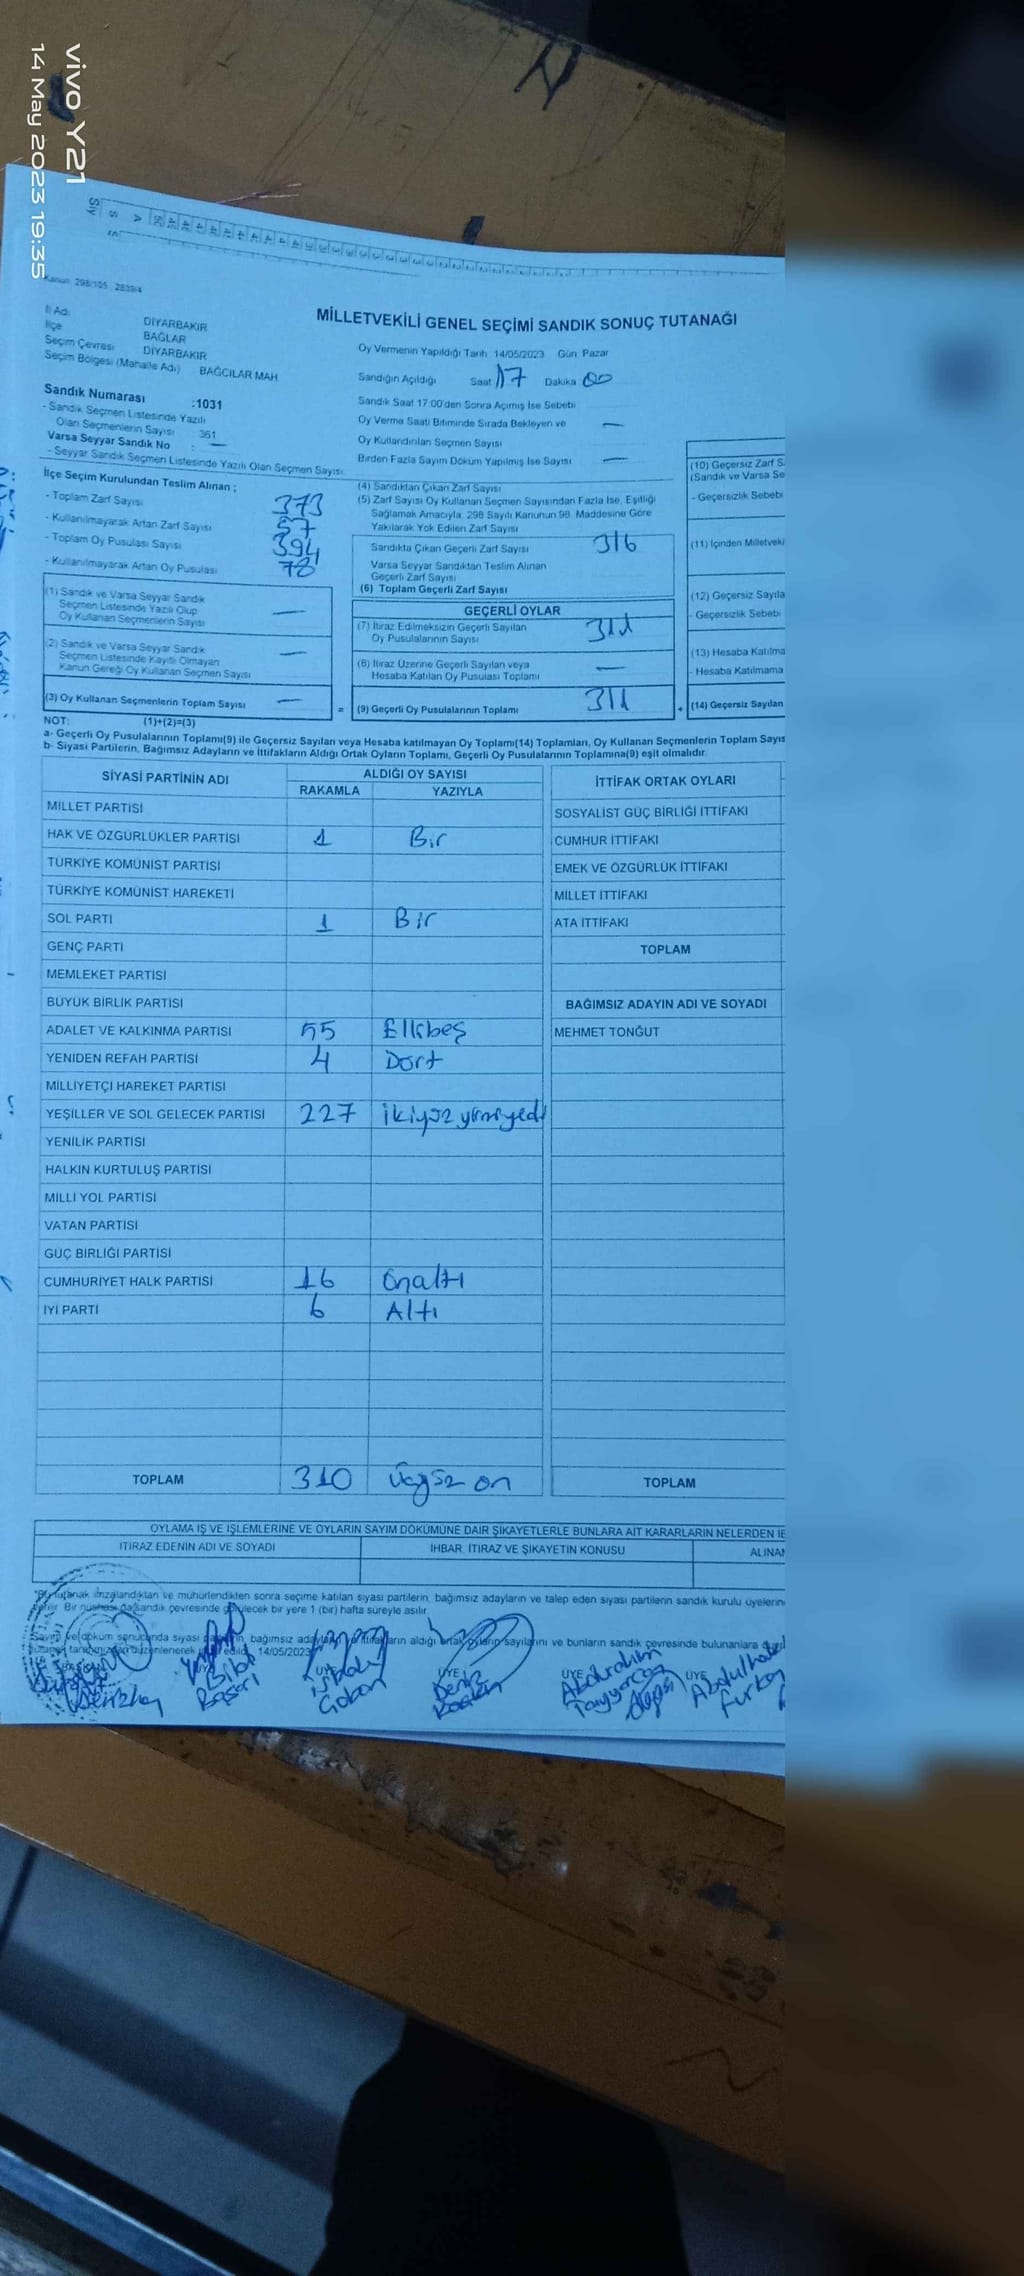 vivo Y21
14 May 2023 19:35
Kanun: 298/105 , 2839/4
MİLLETVEKİLİ GENEL SEÇİMİ SANDIK SONUÇ TUTANAĞI
İl Adı DİYARBAKIR
İlçe BAĞLAR
Seçim Çevresi DİYARBAKIR
Seçim Bölgesi (Mahalle Adı) BAĞCILAR MAH
Sandık Numarası :1031
- Sandık Seçmen Listesinde Yazılı
Olan Seçmenlerin Sayısı : 361
Varsa Seyyar Sandık No : —
- Seyyar Sandık Seçmen Listesinde Yazılı Olan Seçmen Sayısı:
Oy Vermenin Yapıldığı Tarih 14/05/2023 Gün Pazar
Sandığın Açıldığı Saat 17 Dakika 00
Sandık Saat 17:00'den Sonra Açımış İse Sebebi
Oy Verme Saati Bitiminde Sırada Bekleyen ve —
Oy Kullandırılan Seçmen Sayısı
Birden Fazla Sayım Döküm Yapılmış İse Sayısı —
İlçe Seçim Kurulundan Teslim Alınan ;
- Toplam Zarf Sayısı 373
- Kullanılmayarak Artan Zarf Sayısı 57
- Toplam Oy Pusulası Sayısı 394
- Kullanılmayarak Artan Oy Pusulası 78
(1) Sandık ve Varsa Seyyar Sandık
Seçmen Listesinde Yazılı Olup
Oy Kullanan Seçmenlerin Sayısı —
(2) Sandık ve Varsa Seyyar Sandık
Seçmen Listesinde Kaydı Olmayan
Kanun Gereği Oy Kullanan Seçmen Sayısı —
(3) Oy Kullanan Seçmenlerin Toplam Sayısı —
=
(4) Sandıktan Çıkan Zarf Sayısı
(5) Zarf Sayısı Oy Kullanan Seçmen Sayısından Fazla İse, Eşitliği
Sağlamak Amacıyla; 298 Sayılı Kanunun 98. Maddesine Göre
Yakılarak Yok Edilen Zarf Sayısı
Sandıkta Çıkan Geçerli Zarf Sayısı 316
Varsa Seyyar Sandıktan Teslim Alınan
Geçerli Zarf Sayısı
(6) Toplam Geçerli Zarf Sayısı
GEÇERLİ OYLAR
(7) İtiraz Edilmeksizin Geçerli Sayılan
Oy Pusulalarının Sayısı 311
(8) İtiraz Üzerine Geçerli Sayılan veya
Hesaba Katılan Oy Pusulası Toplamı —
(9) Geçerli Oy Pusulalarının Toplamı 311
+
(10) Geçersiz Zarf S
(Sandık ve Varsa Se
- Geçersizlik Sebebi
(11) İçinden Milletveki
(12) Geçersiz Sayıla
Geçersizlik Sebebi
(13) Hesaba Katılma
- Hesaba Katılmama
(14) Geçersiz Sayılan
NOT: (1)+(2)=(3)
a- Geçerli Oy Pusulalarının Toplamı(9) ile Geçersiz Sayılan veya Hesaba katılmayan Oy Toplamı(14) Toplamları, Oy Kullanan Seçmenlerin Toplam Sayıs
b- Siyasi Partilerin, Bağımsız Adayların ve İttifakların Aldığı Ortak Oyların Toplamı, Geçerli Oy Pusulalarının Toplamına(9) eşit olmalıdır.
SİYASİ PARTİNİN ADI ALDIĞI OY SAYISI
RAKAMLA YAZIYLA
MİLLET PARTİSİ
HAK VE ÖZGÜRLÜKLER PARTİSİ 1 Bir
TÜRKİYE KOMÜNİST PARTİSİ
TÜRKİYE KOMÜNİST HAREKETİ
SOL PARTİ 1 Bir
GENÇ PARTİ
MEMLEKET PARTİSİ
BÜYÜK BİRLİK PARTİSİ
ADALET VE KALKINMA PARTİSİ 55 Ellibeş
YENİDEN REFAH PARTİSİ 4 Dört
MİLLİYETÇİ HAREKET PARTİSİ
YEŞİLLER VE SOL GELECEK PARTİSİ 227 ikiyüz yirmiyedi
YENİLİK PARTİSİ
HALKIN KURTULUŞ PARTİSİ
MİLLİ YOL PARTİSİ
VATAN PARTİSİ
GÜÇ BİRLİĞİ PARTİSİ
CUMHURİYET HALK PARTİSİ 16 Onaltı
İYİ PARTİ 6 Altı
TOPLAM 310 Üçyüz on
İTTİFAK ORTAK OYLARI
SOSYALİST GÜÇ BİRLİĞİ İTTİFAKI
CUMHUR İTTİFAKI
EMEK VE ÖZGÜRLÜK İTTİFAKI
MİLLET İTTİFAKI
ATA İTTİFAKI
TOPLAM
BAĞIMSIZ ADAYIN ADI VE SOYADI
MEHMET TONĞUT
TOPLAM
OYLAMA İŞ VE İŞLEMLERİNE VE OYLARIN SAYIM DÖKÜMÜNE DAİR ŞİKAYETLERLE BUNLARA AİT KARARLARIN NELERDEN İB
İTİRAZ EDENİN ADI VE SOYADI İHBAR, İTİRAZ VE ŞİKAYETİN KONUSU ALINAN
*Bu tutanak imzalandıktan ve mühürlendikten sonra seçime katılan siyasi partilerin, bağımsız adayların ve talep eden siyasi partilerin sandık kurulu üyelerine
Bir nüshası da sandık çevresinde görülecek bir yere 1 (bir) hafta süreyle asılır.
Sayım ve döküm sonucunda siyasi partilerin, bağımsız adayların ve ittifakların aldığı ortak oyların sayılarını ve bunların sandık çevresinde bulunanlara
14/05/2023
BAŞKAN ÜYE ÜYE ÜYE ÜYE ÜYE
Deniz
Abdurrahim
Furkan